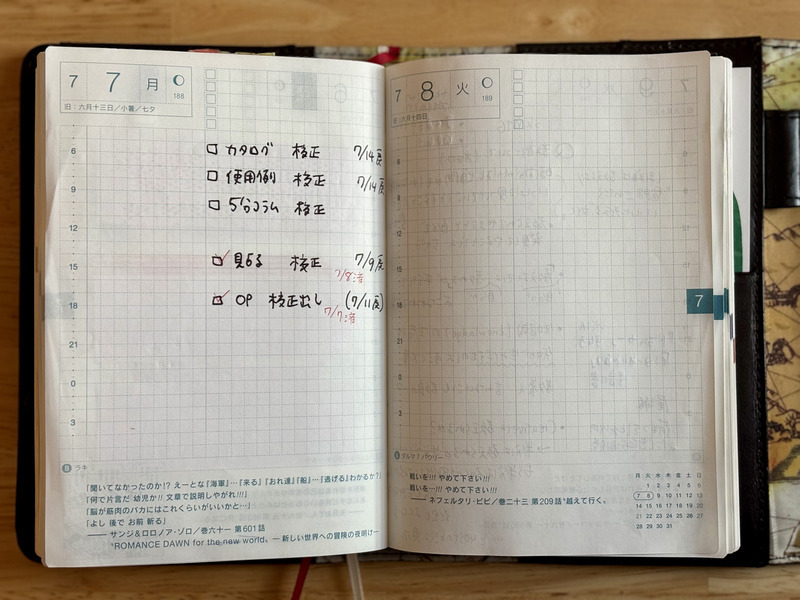 7 7 月
188
旧：六月十三日／小暑／七夕
6
9
12
15
18
21
0
3
□ カタログ 校正 7/14戻
□ 使用例 校正 7/14戻
□ 5分コラム 校正
☑ 見çる 校正 7/9戻
7/8済
☑ OP 校正出し (7/11戻)
7/7済
B ラキ
「聞いてなかったのか!? えーとな『海軍』…『来る』『おれ達』『船』…『逃げる』わかるか?」
「何で片言だ 幼児か!! 文章で説明しやがれ!!!」
「脳が筋肉のバカにはこれくらいがいいかと…」
「よし 後で お前 斬る」
―― サンジ&ロロノア・ゾロ／巻六十一 第601話
"ROMANCE DAWN for the new world、―新しい世界への冒険の夜明け―
7 8 火
189
旧：六月十四日
6
9
12
15
18
21
0
3
7
B ダルマ / パウリー
戦いを!!! やめて下さい!!!
戦いを…!!! やめて下さい!!!
―― ネフェルタリ・ビビ／巻二十三 第209話"越えて行く。
月 火 水 木 金 土 日
1 2 3 4 5 6
7 8 9 10 11 12 13
14 15 16 17 18 19 20
21 22 23 24 25 26 27
28 29 30 31